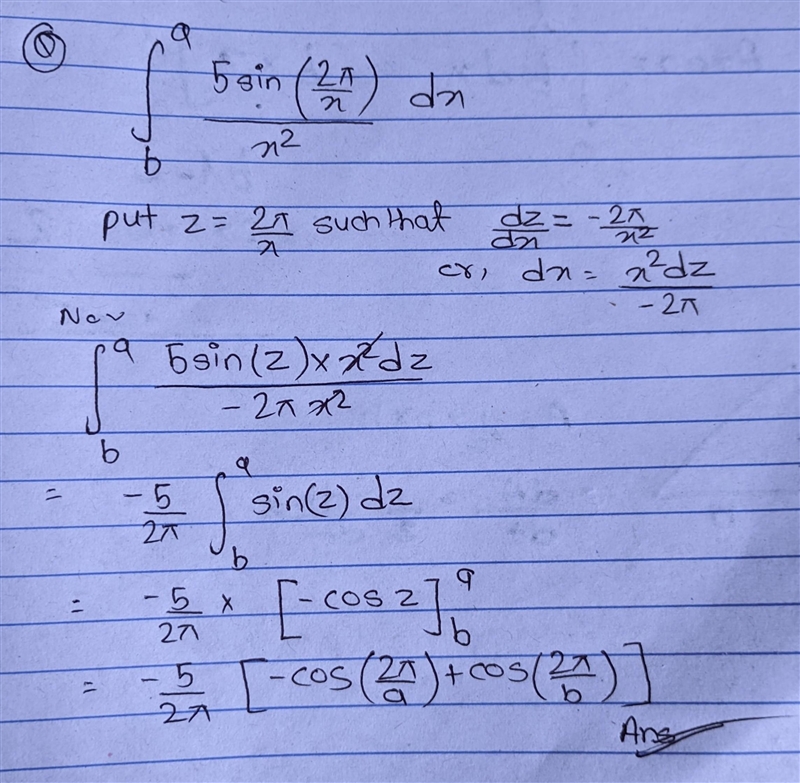 Q ∫_b^a 5sin(2π/x)/x² dx
put z = 2π/x such that dz/dx = -2π/x²
or, dx = x²dz/-2π
Now
∫_b^a 5sin(z) × x²dz/-2π x²
= -5/2π ∫_b^a sin(z) dz
= -5/2π × [-cos z]_b^a
= -5/2π [-cos(2π/a) + cos(2π/b)]
Ans